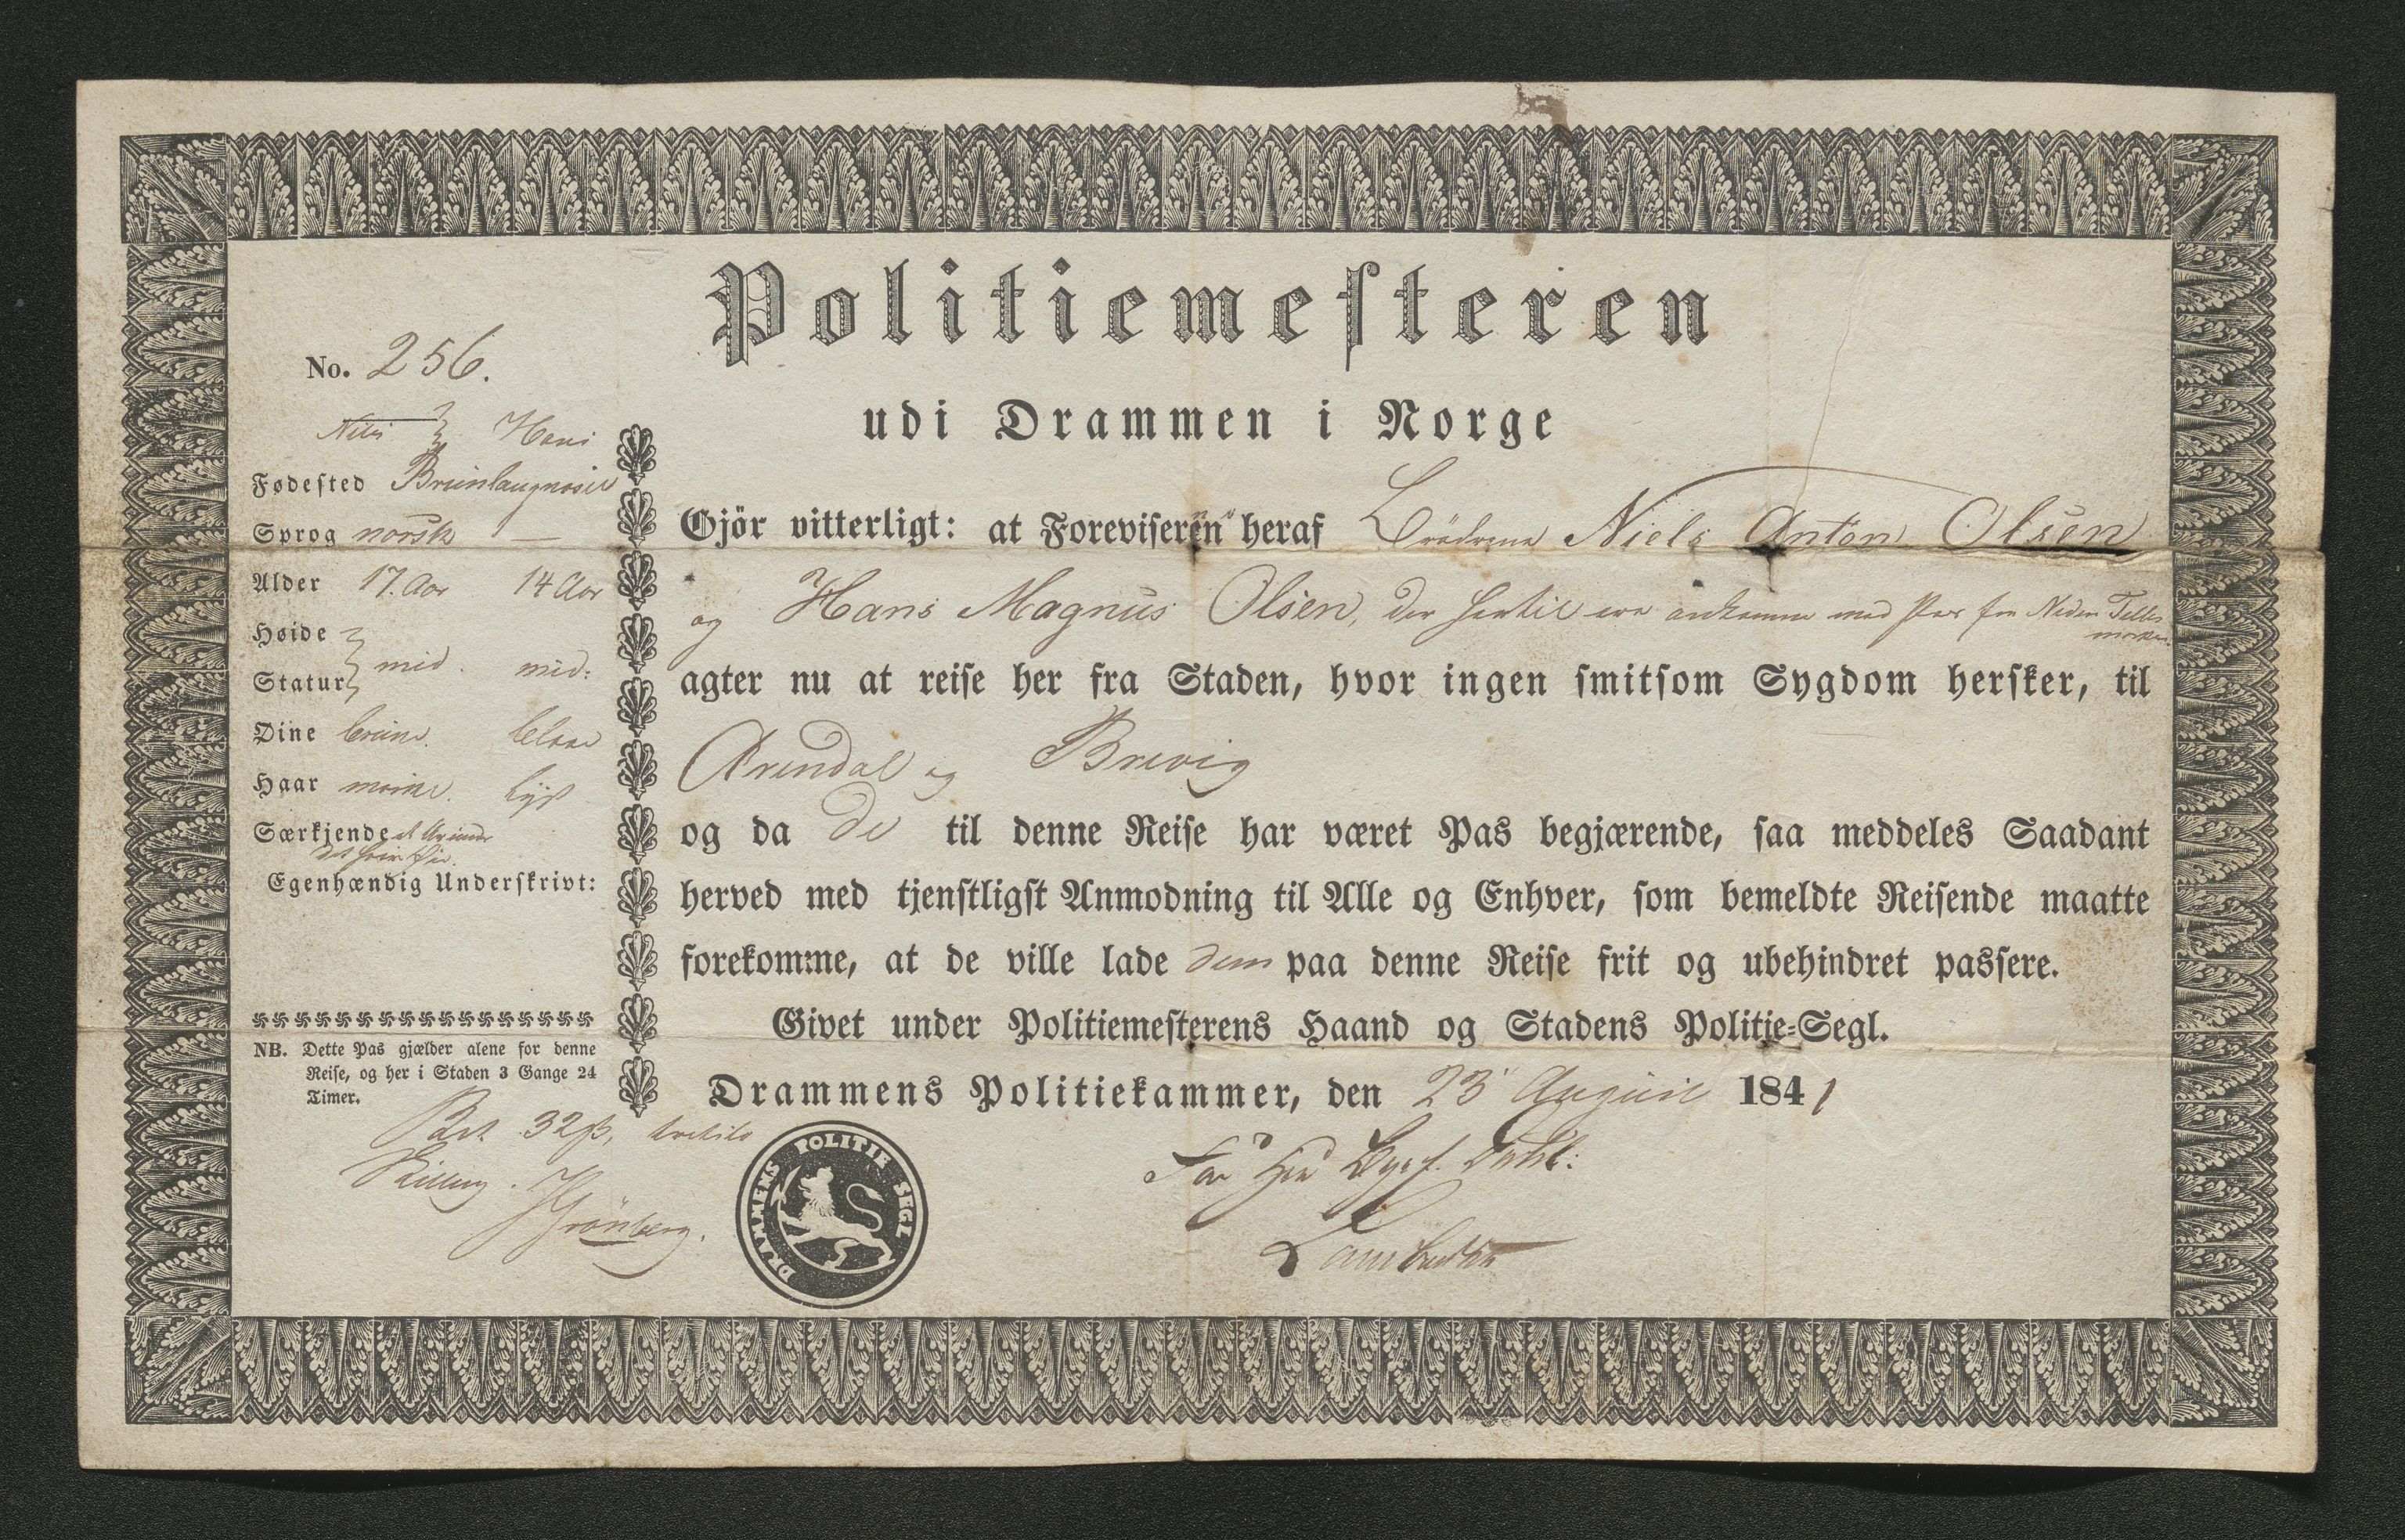 Politiemesteren
udi Drammen i Norge
No. 256.
Niels Hans
Fødested Brunlaugnæsset
Sprog norsk —
Alder 17. Aar 14 Aar
Høide
Statur mid. mid:
Øine brune. blaae
Haar mørke. lyst
Særkjende
Egenhændig Underskrivt:
NB. Dette Pas gjælder alene for denne
Reise, og her i Staden 3 Gange 24
Timer.
Bet. 32 ß,
Skilling.
Grönberg.
Gjör vitterligt: at Foreviseren heraf Brödrene Niels Anton Olsen
og Hans Magnus Olsen, der hertil ere ankomne med Pas fra Neden Telle-
marken
agter nu at reise her fra Staden, hvor ingen smitsom Sygdom hersker, til
Arendal og Brevig
og da de til denne Reise har været Pas begjærende, saa meddeles Saadant
herved med tjenstligst Anmodning til Alle og Enhver, som bemeldte Reisende maatte
forekomme, at de ville lade dem paa denne Reise frit og ubehindret passere.
Givet under Politiemesterens Haand og Stadens Politie-Segl.
Drammens Politiekammer, den 23 August 1841
DRAMMENS POLITIE SEGL